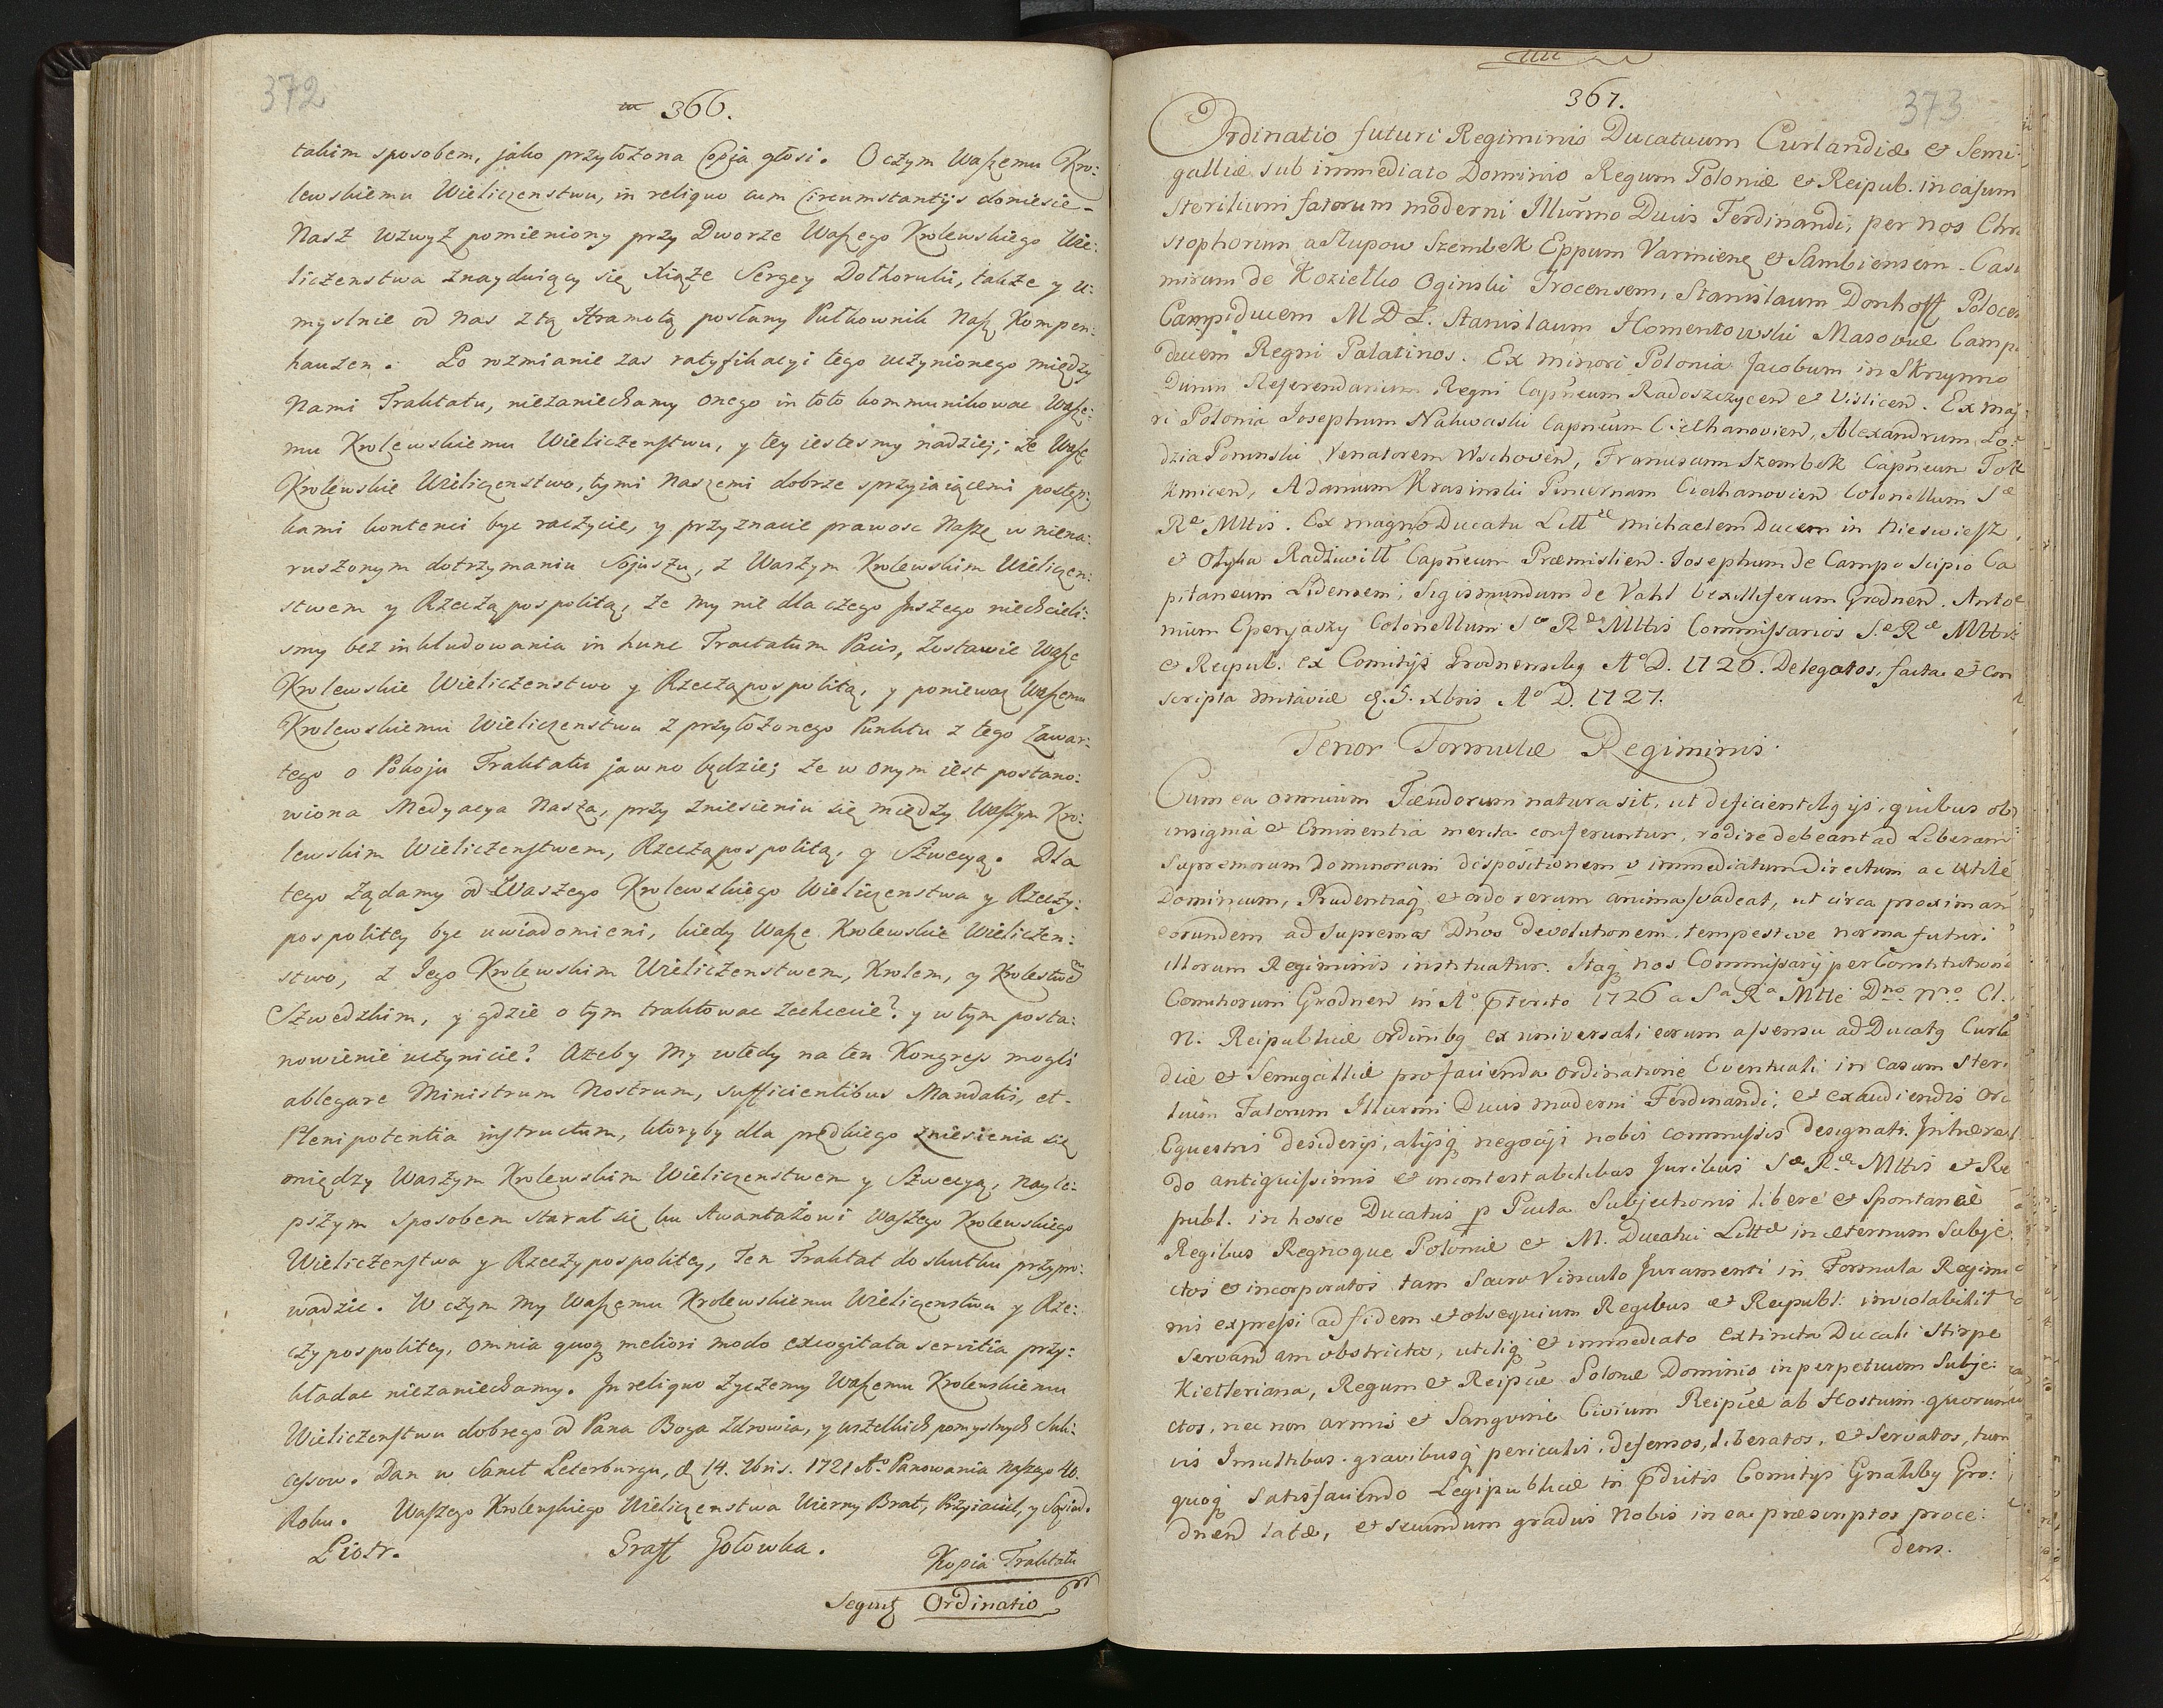 372
366.
takim sposobem, jako przyłożona Copja głosi. O czym Waszemu Kro:
lewskiemu Wieliczenstwu, in reliquo cum Circumstantijs doniesie-
Nasz wzwyż pomieniony przy Dworze Waszego Krolewskiego Wie:
liczenstwa znayduiący się Xiąże Sergey Dołhoruki, także y u:
myslnie od nas z tą Hramotą posłany Pułkownik Nasz Kompen:
hauzen. Po rozmianie zas ratyfikacyi tego uczynionego między
Nami Traktatu, niezaniechamy onego in toto kommunikowac Wasze:
mu Krolewskiemu Wieliczenstwu, y tey iestesmy nadziei; że Wasze
Krolewskie Wieliczenstwo, tymi Naszemi dobrze sprzyiaiącemi postęp:
kami kontenci byc raczycie, y przyznacie prawosc Naszę w niena:
ruszonym dotrzymaniu Sojuszu, z Waszym Krolewskim Wieliczen:
stwem y Rzeczą pospolitą, że My nie dla czego Juszego niechcieli:
smy bez inkludowania in hunc Tractatum Pacis, zostawic Wasze
Krolewskie Wieliczenstwo y Rzeczą pospolitą, y poniewaz Waszemu
Krolewskiemu Wieliczenstwu z przyłożonego Punktu z tego zawar:
tego o Pokoju Traktatu jawno będzie; że w onym iest postano:
wiona Medyacya Nasza, przy zniesieniu się między Waszym Kro:
lewskim Wieliczenstwem, Rzecząpospolitą, y Szwecyą. Dla
tego żądamy od Waszego Krolewskiego Wieliczenstwa y Rzeczy:
pospolitey byc uwiadomieni, kiedy Wasze Krolewskie Wieliczen:
stwo, z Jego Krolewskim Wieliczenstwem, Krolem, y Krolestwē
Szwedzkim, y gdzie o tym traktowac zechcecie? y w tym posta:
nowienie uczynicie? Ażeby My wtedy na ten Kongress mogli
ablegare Ministrum Nostrum, sufficientibus Mandatis, et-
Plenipotentia instructum, ktoryby dla prędkiego zniesienia się
między Waszym Krolewskim Wieliczenstwem y Szwecyą, nayle:
pszym sposobem starał się ku Awantażowi Waszego Krolewskiego
Wieliczenstwa y Rzeczypospolitey, ten Traktat do skutku przypro:
wadzic. W czym My Waszemu Krolewskiemu Wieliczenstwu y Rze:
czypospolitey, omnia quoq meliori modo excogitata servitia przy:
kładac niezaniechamy. In reliquo życzemy Waszemu Krolewskiemu
Wieliczenstwu dobrego od Pana Boga Zdrowia, y wszelkich pomyslnych Suk:
cessow. Dan w Sanct Peterburgu, d 14. 7bris. 1721 Ao. Panowania Naszego 40.
Roku. Waszego Krolewskiego Wieliczenstwa Wierny Brat, Przyiaciel, y Sąsiad.
Piotr. Graff Gołowka.
Kopia Traktatu
Sequit Ordinatio
367.
373
Ordinatio futuri Regiminis Ducatuum Curlandiæ et Semi:
galliæ sub immediato Dominio Regum Poloniæ et Reipub. in casum
Sterilium fatorum moderni Illurmo Ducis Ferdinandi, per nos Chri
stophorum a Słupow Szembek Eppum Varmiensę et Sambiensem. Casi
mirum de Kozielko Oginski Trocensem, Stanislaum Donhoff Polocen
Campiducem M D L. Stanislaum Homentowski Masoviæ Campi
ducem Regni Palatinos. Ex minori Polonia Jacobum in Skrzynno
Dunin Referendarium Regni Capneum Radoszyceñ et Visliceñ. Ex maj
ri Polonia Josephum Nakwaski Capneum Ciechanovieñ, Alexandrum Lo:
dzia Poninski Venatorem Wschoveñ, Franciscum Szembek Capneum Tolk
kmiceñ, Adamum Krasinski Pincernam Ciechanovieñ Colonellum Sæ
Ræ Mttis. Ex magno Ducatu Littæ Michaelem Ducem in Nieswiesz,
et Olyka Radziwiłł Capneum Præmislieñ. Josephum de Campo Scipio Ca
pitaneum Lidensem, Sigismundum de Vahl Vexilliferum Grodneñ. Anto
nium Eperjaszy Colonellum Sæ Ræ Mttis Commissarios Sæ Ræ Mttis
et Reipub. ex Comitijs Grodnensibq Ao D. 1726. Delegatos, facta et con
scripta Mitaviæ d. 5. Xbris Ao D. 1727.
Tenor Formulæ Regiminis.
Cum ea omnium Fæudorum natura sit, ut deficientibq ijs, quibus ob
insignia et Eminentia merita conferuntur, redire debeant ad Liberam
Supremorum Dominorum dispositionem v immediatum directum ac utile
Dominium, Prudentiaq et ordo rerum anima svadeat, ut circa proximam
eorundem ad Supremos Dnos devolutionem tempestive norma futuri
illorum Regiminis instituatur. Itaq nos Commissarij per Constitutione
Comitiorum Grodneñ in Ao pterito 1726 a Sa Ra Mtte Dno. Nro. Cl.
n. Reipublicæ ordinibq ex universali eorum assensu ad Ducatq Curla
diæ et Semigalliæ pro facienda ordinatione Eventuali in casum Steri
lium Fatorum Illurmi Ducis moderni Ferdinandi, et exaudiendis Ord
Equestris desiderijs, alijsq negocijs nobis commissis designati. Inhæren
do antiquissimis et incontestabilibus Juribus Sæ Ræ Mttis et Re
publ. in hosce Ducatus p Pacta Subjectionis libere et Spontanee
Regibus Regnoque Poloniæ et M. Ducatui Littæ in æternum Subje
ctos et incorporatos tam Sacro Vinculo Juramenti in Formula Regimi
nis expressi ad fidem et obsequium Regibus et Republ. inviolabilit
servandam obstrictos, utiliq et immediato extincta Ducali Stirpe
Kietleriana, Regum et Reipcæ Polonæ Dominio in perpetuum Subje:
ctos, nec non armis et Sangvine Civium Reipcæ ab Hostium quorum
vis Insultibus gravibusq periculis, defensos, liberatos, et Servatos, tum
quoq satisfaciendo Legi publicæ in pdictis Comitijs Gnalibq Gro:
dneñ latæ, et secundum gradus Nobis in ea præscriptos proce:
dens.